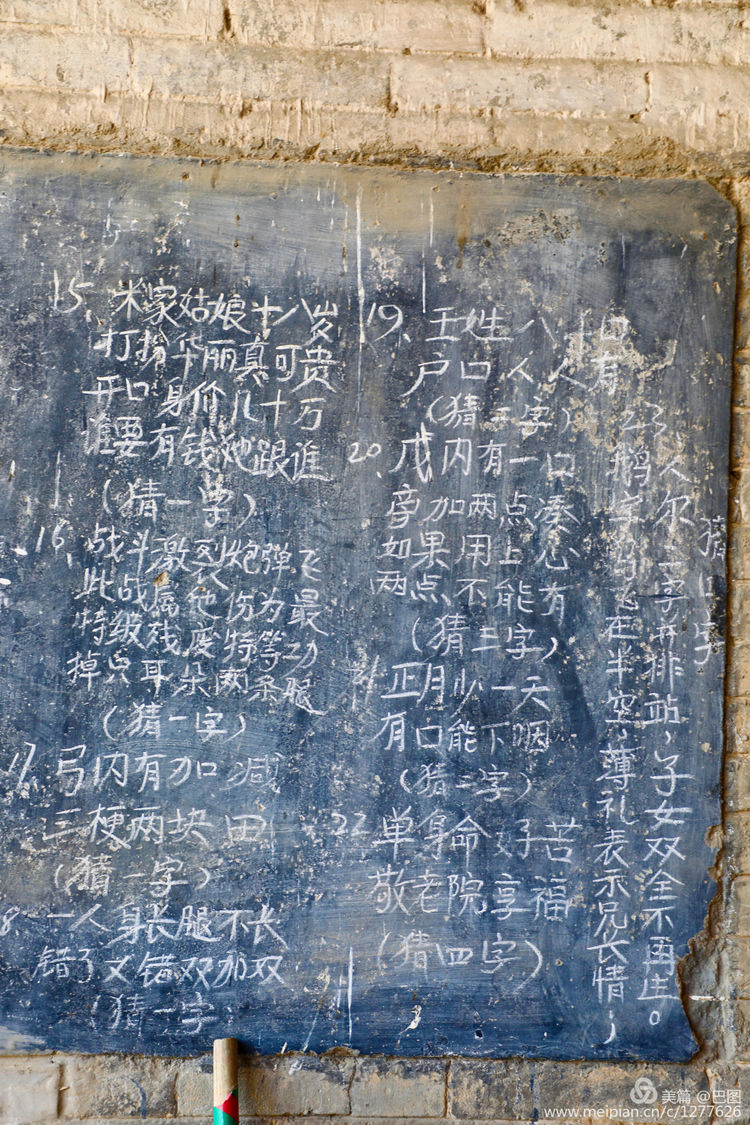 15、木家姑娘十八岁
打扮华丽真可贵
开口身价几十万
谁要有钱她跟谁
(猜一字)
16、战斗激烈炮弹飞
此战属他伤为最
特级残废特等功
掉只耳朵两条腿
(猜一字)
17、弓内有加减
三梗两块田
(猜一字)
18、一人身长腿不长
错了又错双加双
(猜一字
19、王姓八口
户口人人有
(猜三字)
20、戊内有一口
旁加两点凑
如果用上心
两点不能有
(猜三字)
21、正月少一天
有口能下咽
(猜二字)
22、单身命好苦
敬老院享福
(猜四字)
23、人尔三字并排站，子女双全不再生。
鹅字鸟飞在半空，薄礼表示兄长情；
猜 字
美篇 @巴图
www.meipian.cn/c/1277626